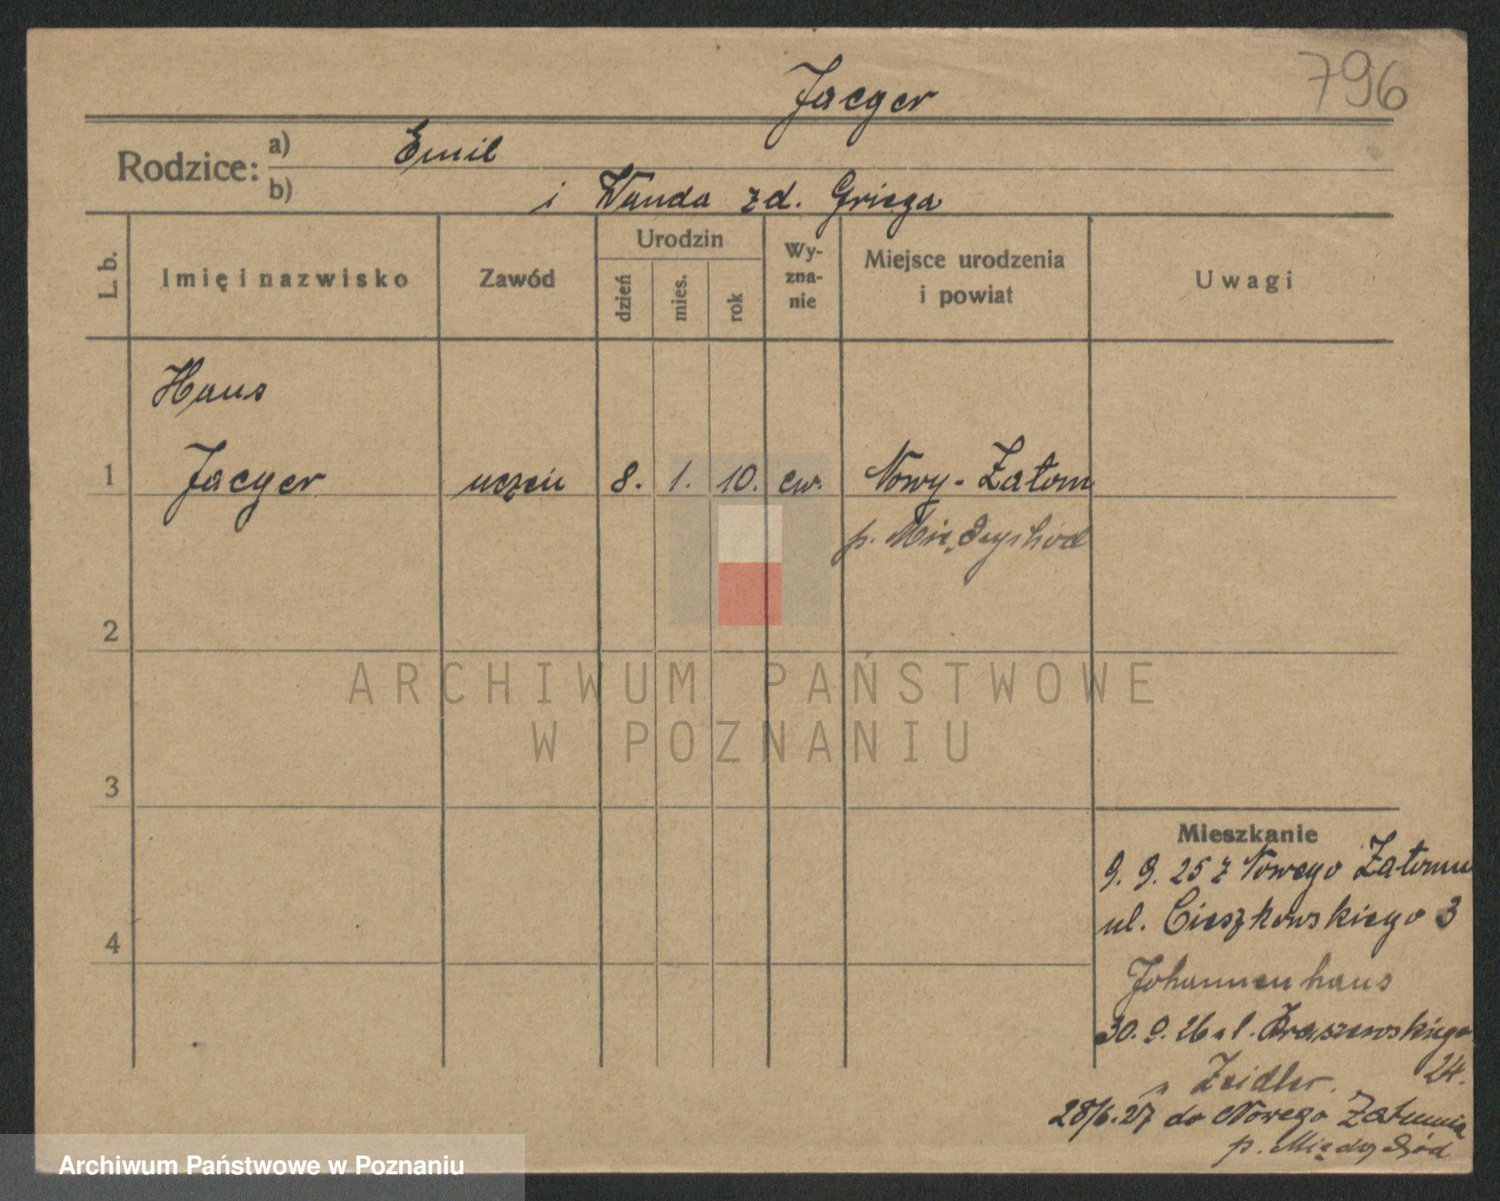 Jaeger
796
Rodzice:
a) Emil
b) i Wanda zd. Griega
L. b.
Imię i nazwisko
Zawód
Urodzin
dzień
mies.
rok
Wy-
zna-
nie
Miejsce urodzenia
i powiat
Uwagi
Hans
1 Jaeger uczeń 8. 1. 10. ew. Nowy-Zatom
p. Międzychód
2
3
4
Mieszkanie
9. 9. 25 z Nowego Zatomu
ul. Cieszkowskiego 3
Johannenhaus
30. 9. 26 ul. Kraszewskiego
24.
Zeidler.
28/6. 27 do Nowego
p.
ARCHIWUM PAŃSTWOWE
W POZNANIU
Archiwum Państwowe w Poznaniu